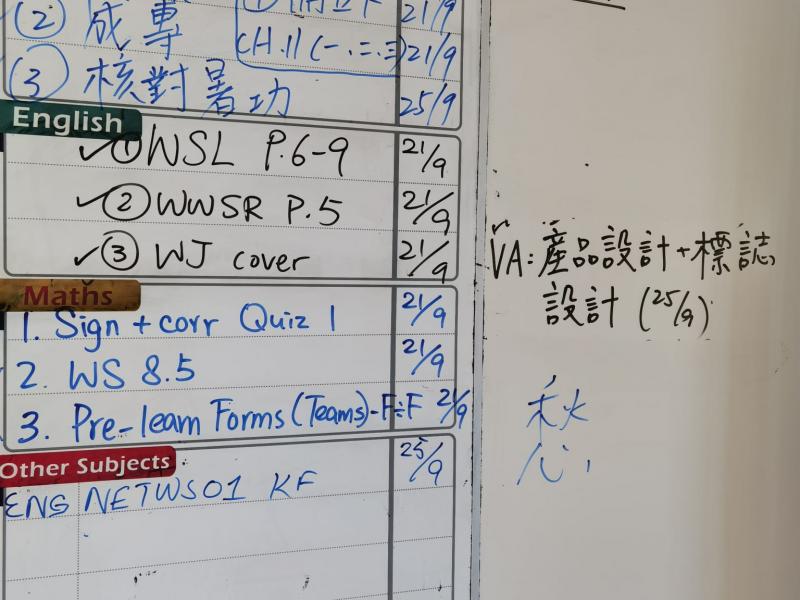 21/9
(2) 成專
CH.11 (一.二.三) 21/9
(3) 核對暑功 25/9
English
✓① WSL P.6-9 21/9
✓② WWSR P.5 21/9
✓③ WJ cover 21/9
Maths
1. Sign + corr Quiz 1 21/9
2. WS 8.5 21/9
3. Pre-learn Forms (Teams)-F÷F 21/9
Other Subjects
ENG NETWS01 KF 25/9
VA: 產品設計+標誌
設計 (25/9)
秋
心